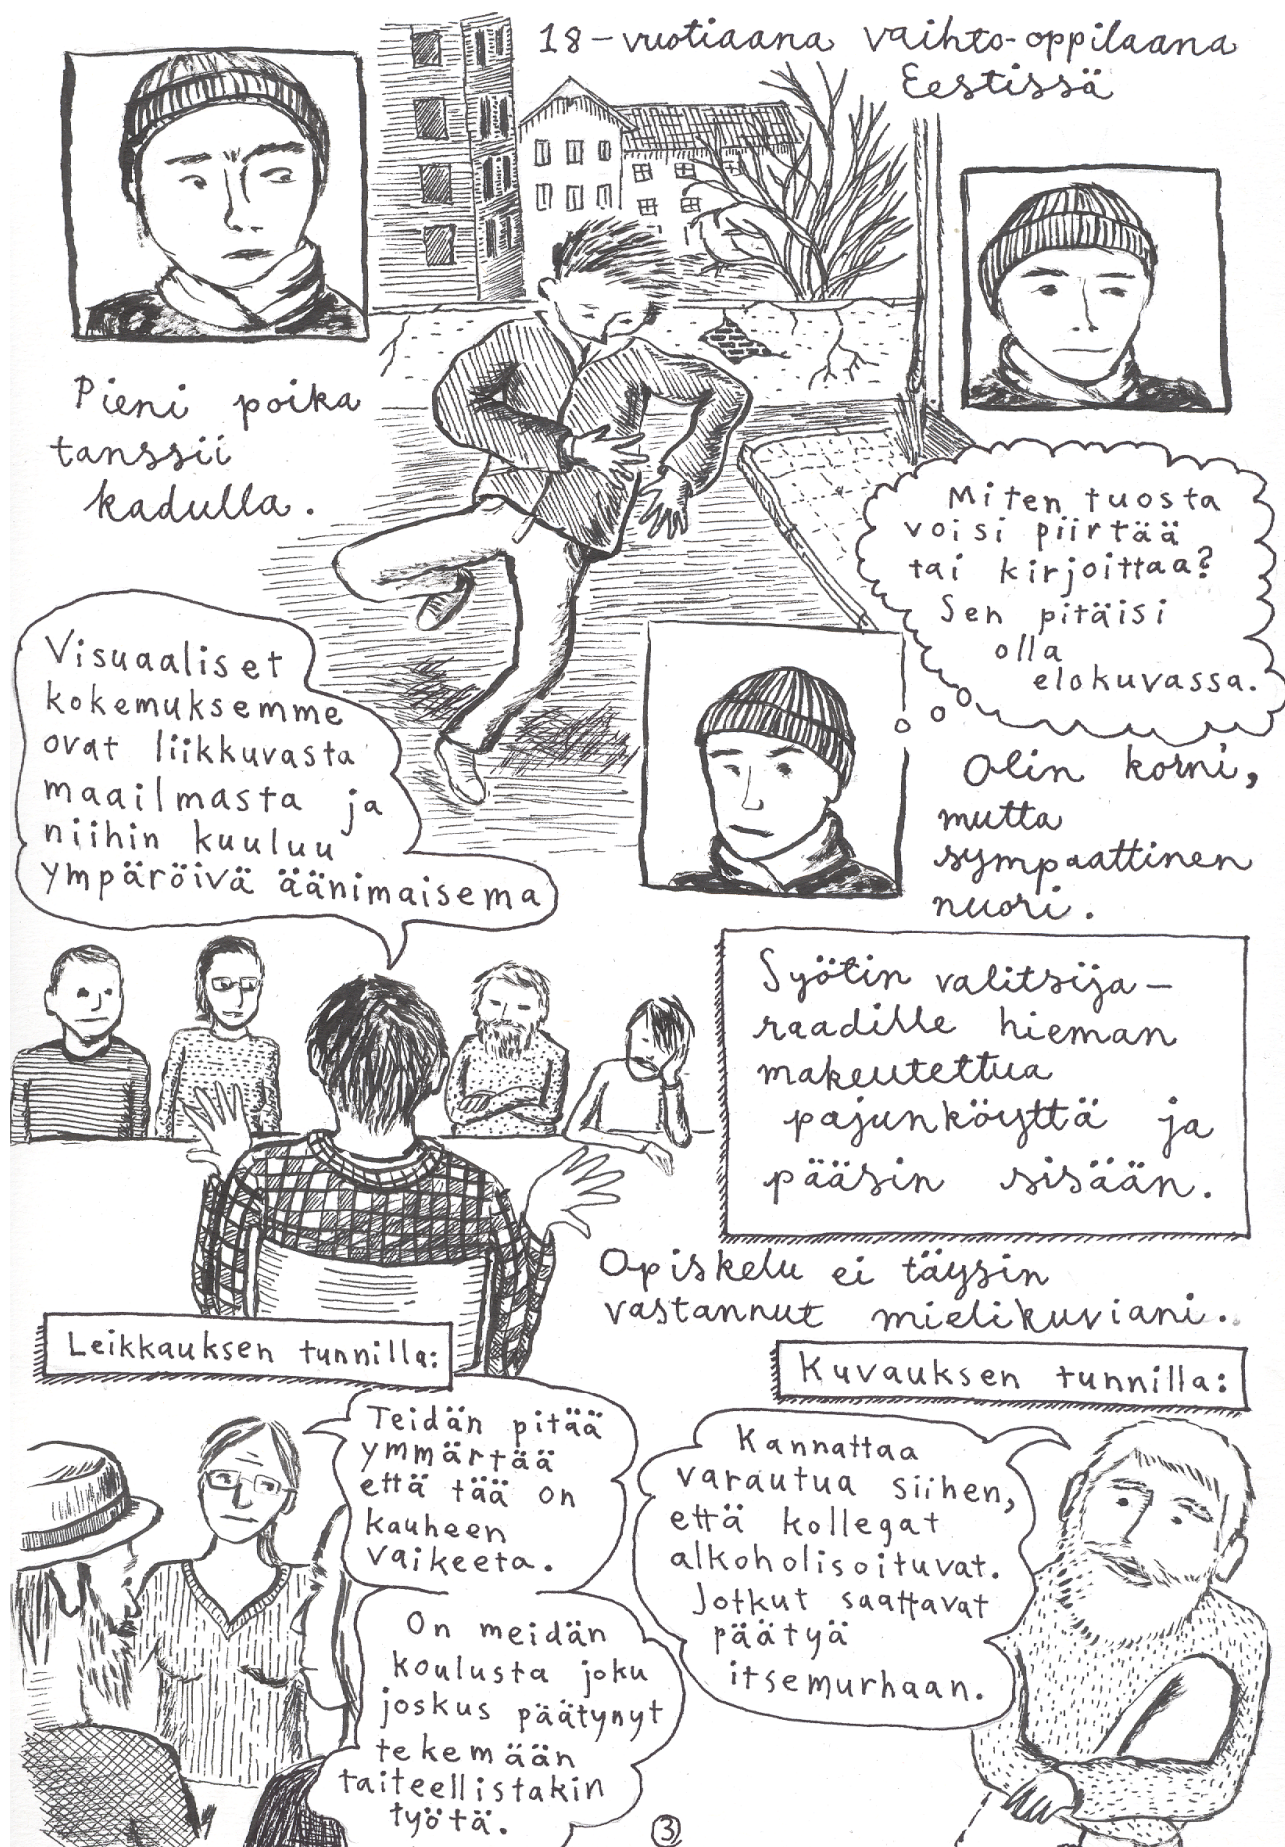 18-vuotiaana vaihto-oppilaana
Eestissä
Pieni poika
tanssii
kadulla.
Miten tuosta
voisi piirtää
tai kirjoittaa?
Sen pitäisi
olla
elokuvassa.
Olin korni,
mutta
sympaattinen
nuori.
Visuaaliset
kokemuksemme
ovat liikkuvasta
maailmasta ja
niihin kuuluu
ympäröivä äänimaisema
Syötin valitsija-
raadille hieman
makeutettua
pajunköyttä ja
pääsin sisään.
Opiskelu ei täysin
vastannut mielikuviani.
Leikkauksen tunnilla:
Teidän pitää
ymmärtää
että tää on
kauheen
vaikeeta.
On meidän
koulusta joku
joskus päätynyt
tekemään
taiteellistakin
työtä.
Kuvauksen tunnilla:
Kannattaa
varautua siihen,
että kollegat
alkoholisoituvat.
Jotkut saattavat
päätyä
itsemurhaan.
3